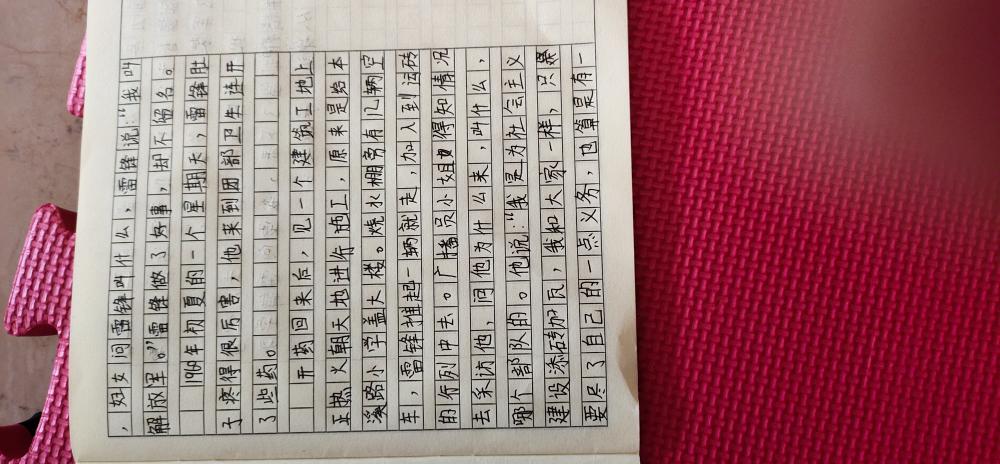 ，妇女问雷锋叫什么，雷锋说：“我叫
解放军。”雷锋做了好事，却不留名。
1960年初夏的一个星期天，雷锋肚
子疼得很厉害，他来到团部卫生连开
了些药。
开药回来后，见一个建筑工地上
正热火朝天地进行施工，原来是给本
溪路小学盖大楼。烧水棚旁有几辆空
车，雷锋推起一辆就走，加入到运砖
的行列中去。广播员小姐姐得知情况
去采访他，问他为什么来，叫什么，
哪个部队的。他说：“我是为社会主义
建设添砖加瓦，我和大家一样，只是
要尽了自己的一点义务，也算是有一